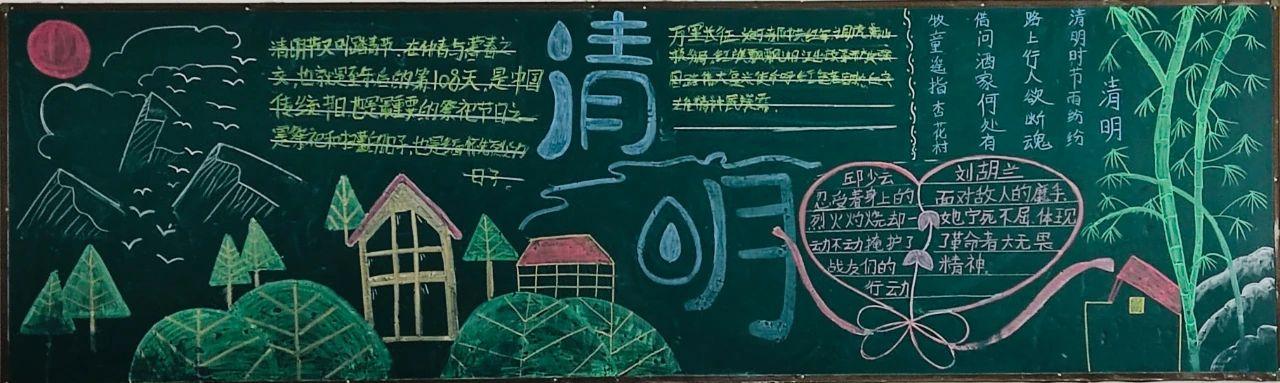 清明
清明节又叫踏青节，在仲春与暮春之
交，也就是冬至后的第108天，是中国
传统节日也是最重要的祭祀节日之
是祭祀和扫墓的日子，也是缅怀先烈的
日子.
清明
清明时节雨纷纷
路上行人欲断魂
借问酒家何处有
牧童遥指杏花村
邱少云
忍受着身上的
烈火灼烧却一
动不动掩护了
战友们的
行动
刘胡兰
面对敌人的魔手
她宁死不屈.体现
了革命者大无畏
精神.